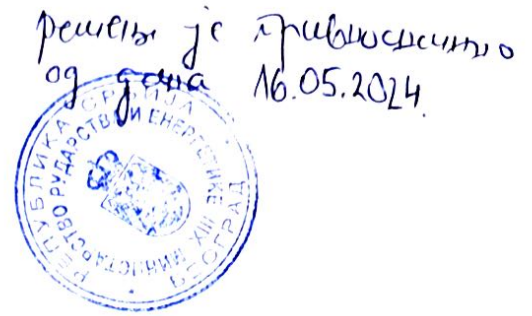 решење је правноснажно
од дана 16.05.2024.
РЕПУБЛИКА СРБИЈА
МИНИСТАРСТВО РУДАРСТВА И ЕНЕРГЕТИКЕ XIII
БЕОГРАД